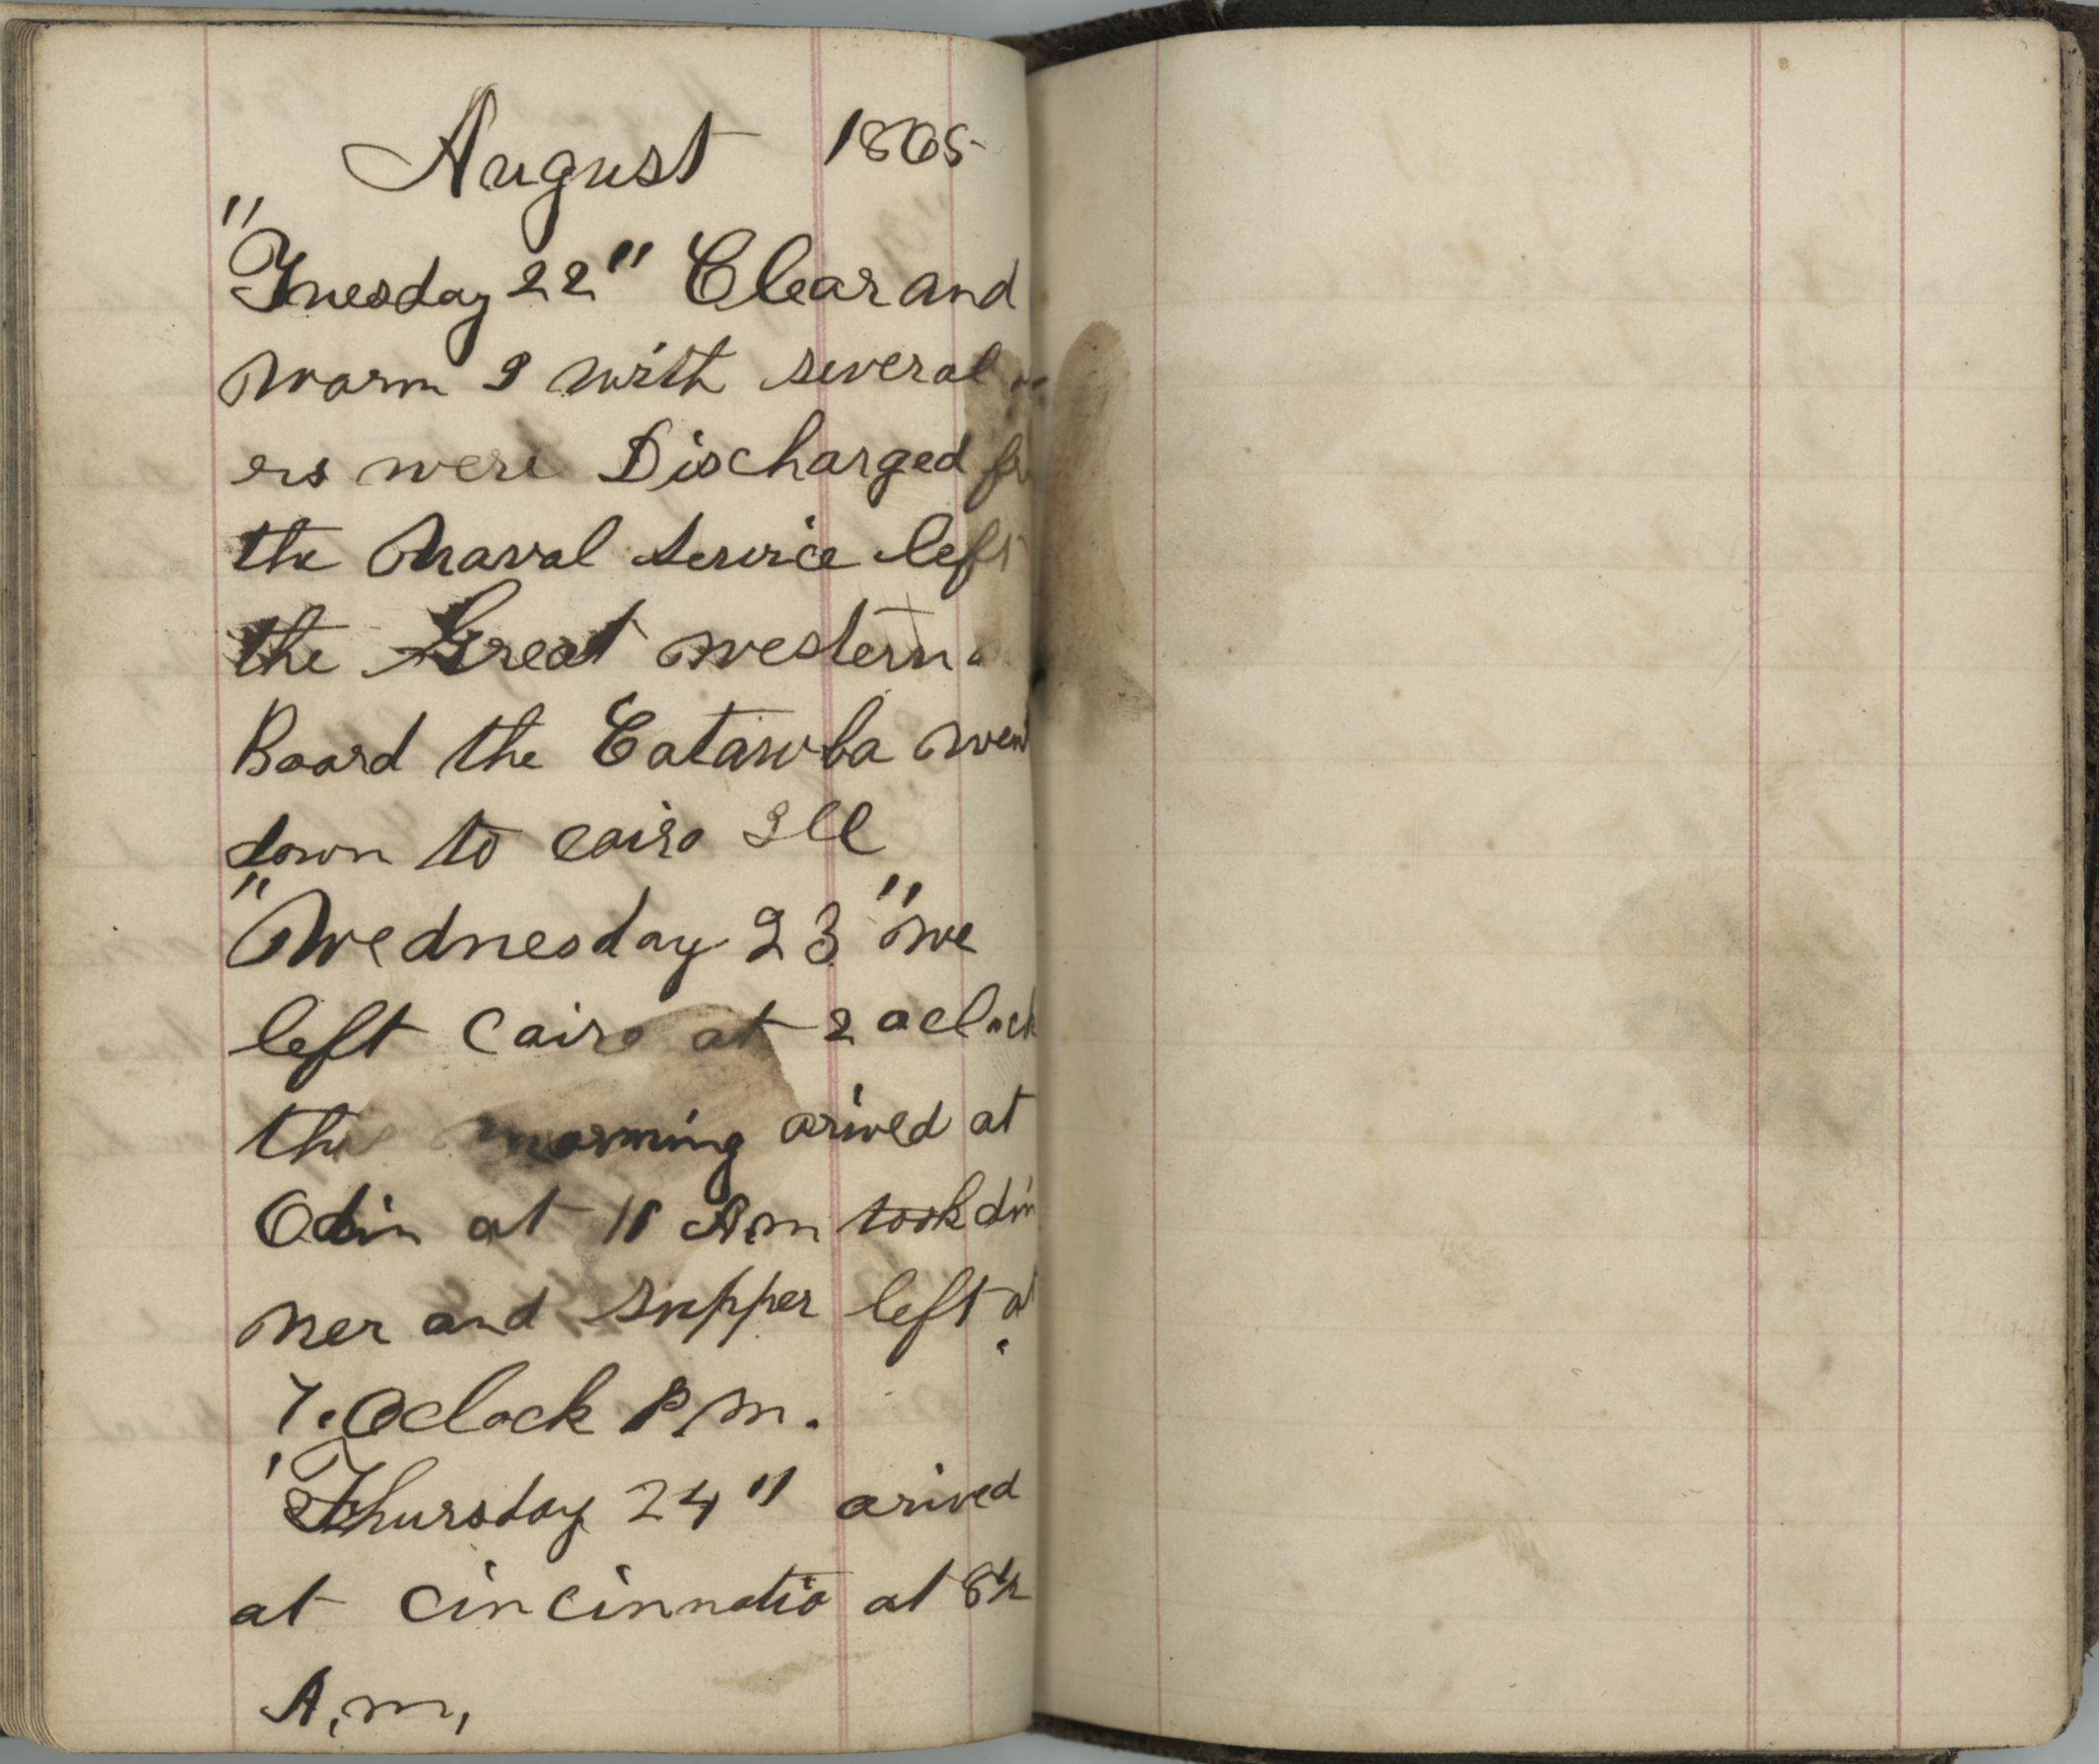 August 1865
"Tuesday 22" Clear and
warm I with several
ers were Discharged
the Naval Service left
the Great western
Board the Catawba went
down to cairo Ill
"Wednesday 23" we
left Cairo at 2 oclock
this morning arived at
Odin at 11 A.m took din
ner and supper left at
7. Oclock P.M.
"Thursday 24" arived
at Cincinnatio at 8½
A.m,